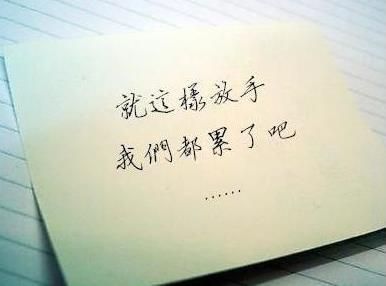 就這樣放手
我們都累了吧
······